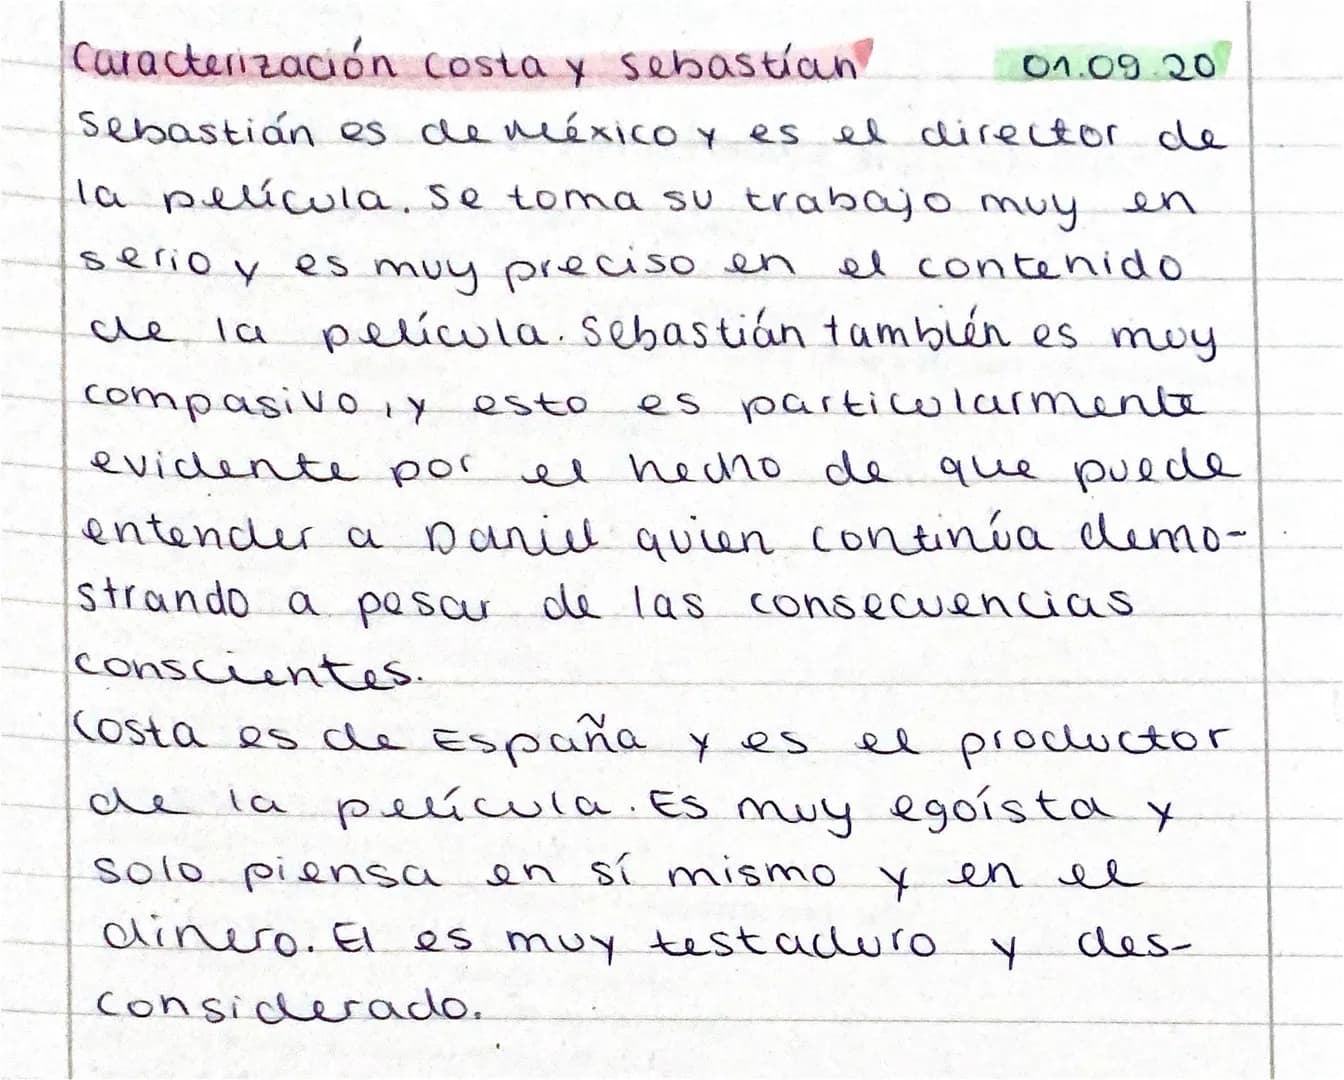 Caracterización Costa y Sebastían 01.09.20
Sebastián es de México y es el director de
la película. Se toma su trabajo muy en
serio y es muy preciso en el contenido
de la película. Sebastián también es muy
compasivo, y esto es particularmente
evidente por el hecho de que puede
entender a Daniel quien continúa demo-
strando a pesar de las consecuencias
conscientes.
Costa es de España y es el productor
de la película. Es muy egoísta y
solo piensa en sí mismo y en el
dinero. El es muy testaduro y des-
considerado.